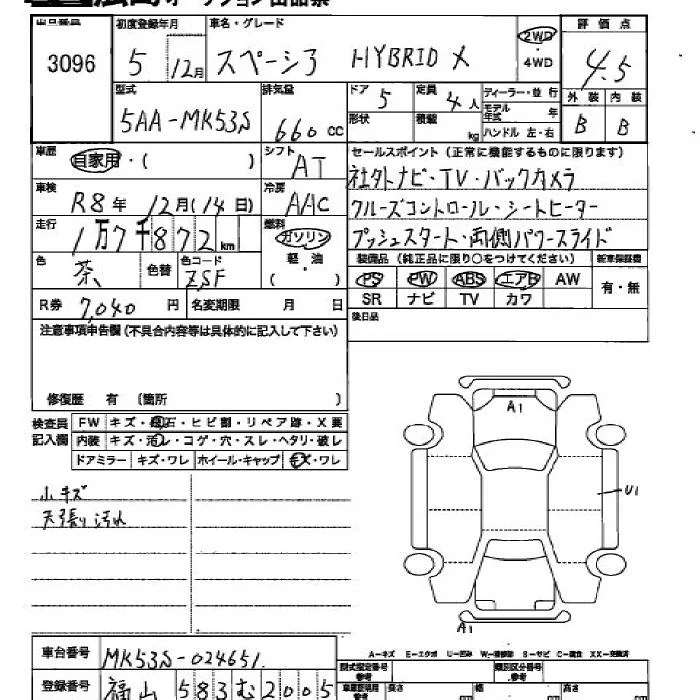 広島オークション出品票
出品番号 初度登録年月 車名・グレード 評価点
3096 5 12月 スペーシア HYBRID X 2WD ・4WD 4.5
型式 排気量 ドア 定員 ディーラー・並行 外装 内装
5AA-MK53S 660 cc 5 4人 モデル年式 年 B B
形状 積載 kg ハンドル 左・右
車歴 自家用・( ) シフト AT セールスポイント(正常に機能するものに限ります)
社外ナビ・TV・バックカメラ
車検 R8年 12月(14日) 冷房 AAC クルーズコントロール・シートヒーター
走行 1万7千872km 燃料 ガソリン 軽・油 ( ) プッシュスタート・両側パワースライド
色 茶 色替 色コード ZSF 装備品(純正品に限り○をつけてください) 新車保証書
PS PW ABS エアB AW 有・無
R券 7,040円 名変期限 月 日 SR ナビ TV カワ
注意事項申告欄(不具合内容等は具体的に記入して下さい) 後日品
修復歴 有 〔箇所 〕
検査員記入欄 FW キズ・飛石・ヒビ割・リペア跡・X要
内装 キズ・汚レ・コゲ・穴・スレ・ヘタリ・破レ
ドアミラー キズ・ワレ ホイール・キャップ キズ・ワレ
A1
小キズ
U1
天張り汚れ
A1
車台番号 MK53S-024651
A-キズ E-エクボ U-凹み W-補修跡 S-サビ C-腐食 XX-交換済
型式指定番号 参考 類別区分番号 参考
登録番号 福山 583 む 2005 車庫証明用 参考 長さ cm 幅 cm 高さ cm